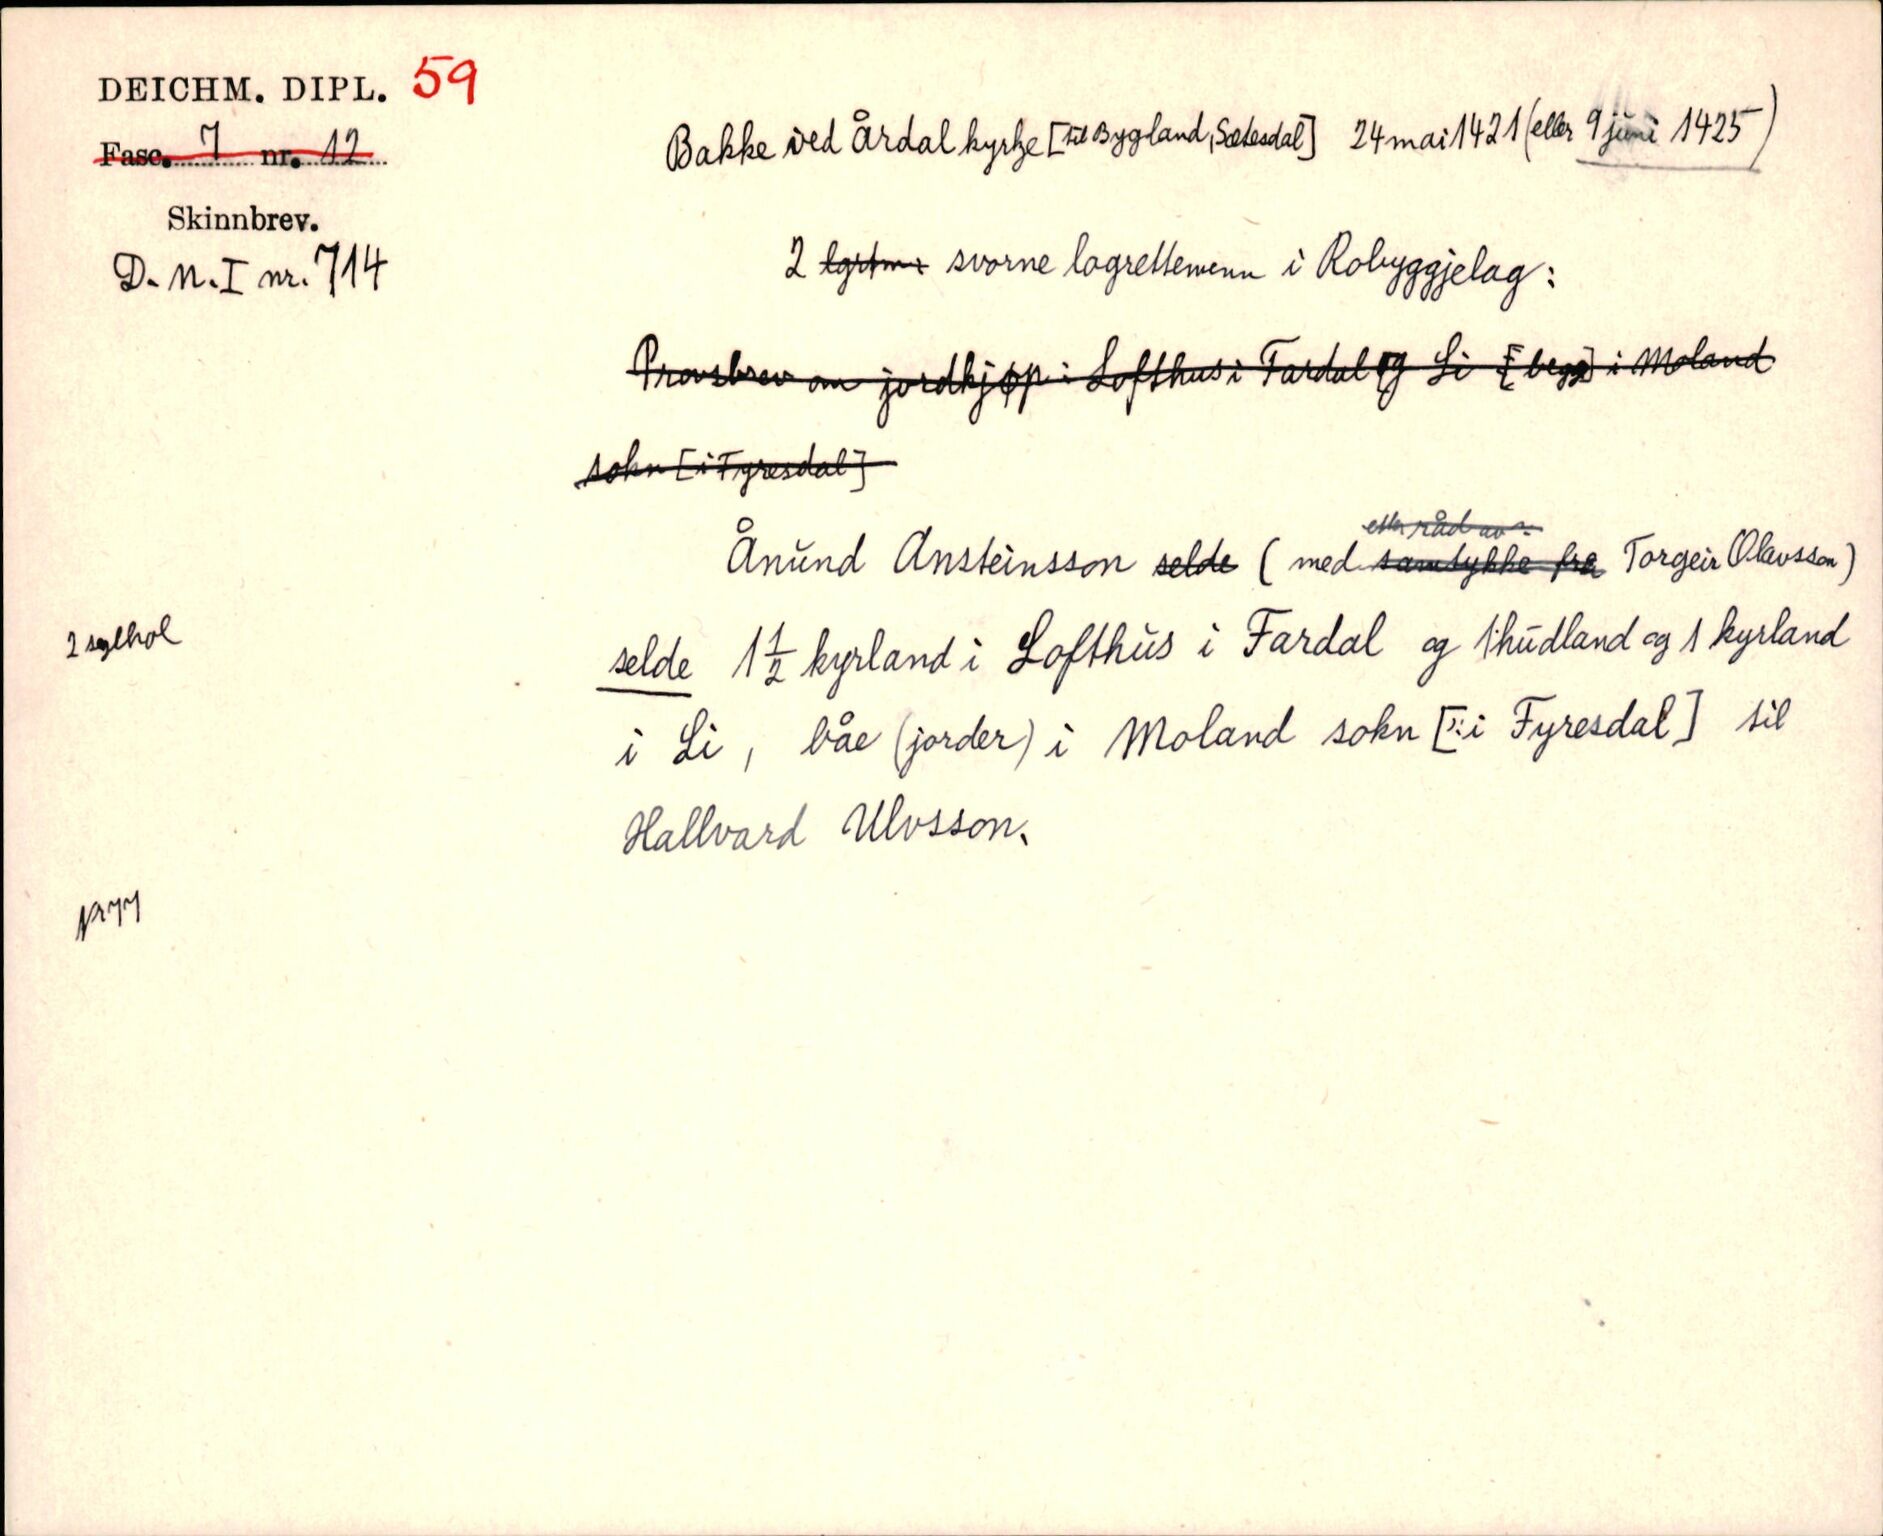 DEICHM. DIPL. 59
Fasc. 7 nr. 12
Skinnbrev.
D. N. I nr. 714
Bakke ved Årdal kyrkje [til Bygland, Sætesdal] 24 mai 1421 (eller 9 juni 1425)
2 lgrtm: svorne lagrettemenn i Robyggjelag:
Provsbrev om jordkjøp i Lofthus i Fardal og Li [begge] i Moland
sokn [i Fyresdal]
etter råd av
Ånund Ansteinsson selde ( med samtykke fra Torgeir Olavsson)
2 seglhol
selde 1 1/2 kyrland i Lofthus i Fardal og 1 hudland og 1 kyrland
i Li, båe (jorder) i Moland sokn [ɔ: i Fyresdal] til
Hallvard Ulvsson.
Nr 77